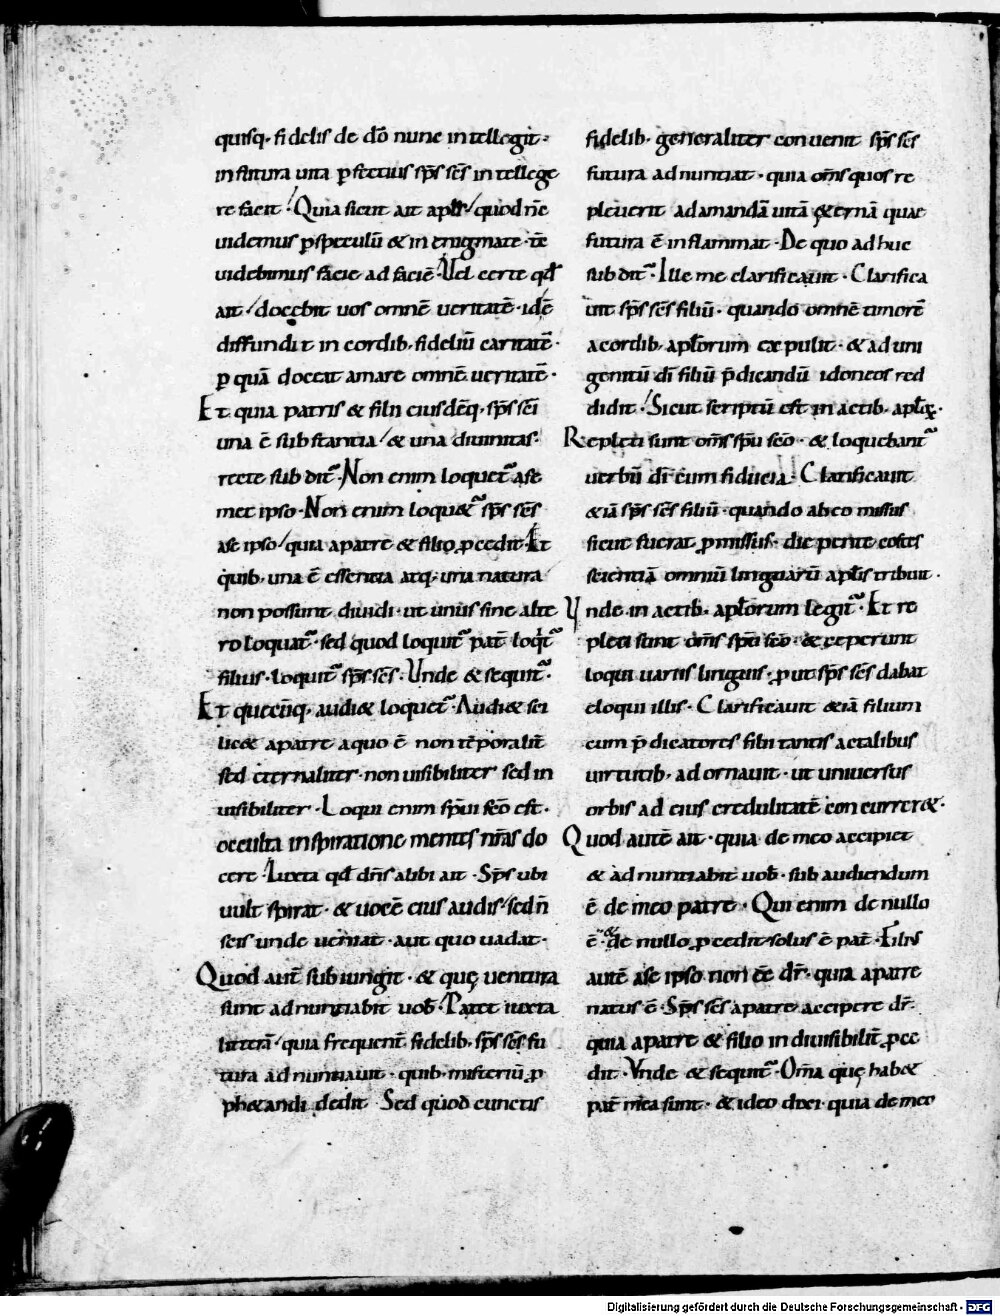 quisq· fidelis de dō nunc intellegit·
In futura uita ꝑfectius sp̄s sc̄s intellege
re faciet· Quia sicut ait apl̄s quod nc̄
uidemus ꝑ speculū & in enigmate· tē
uidebimus facie ad faciē· Vel certe qđ
ait docebit uos omnē ueritatē· idē
diffundit in cordib· fideliū caritatē·
ꝑ quā doceat amare omnē ueritatē·
Et quia patris & filii eiusdēq· sp̄s sc̄i
una ē substantia & una diuinitas·
recte subdit̄· Non enim loquet̄ a se
met ipso· Non enim loquet̄ sp̄s sc̄s
a se ipso quia a patre & filio ꝓcedit· Et
quib· una ē essentia atq· una natura
non possunt diuidi· ut unus sine alte
ro loquat̄· sed quod loquit̄ pat̄ loqt̄
filius· loquit̄ sp̄s sc̄s· Unde & sequit̄·
Et quecūq· audi& loquet̄· Audi& sci
lic& a patre a quo ē non tēporalit̄
sed eternaliter· non uisibiliter sed in
uisibiliter· Loqui enim sp̄ui sc̄o est·
occulta inspiratione mentes nr̄as do
cere· Iuxta qđ dn̄s alibi ait· Sp̄s ubi
uult spirat· & uocē eius audis sed n̄
scis unde ueniat· aut quo uadat·
Quod aut̄ subiungit· & quę uentura
sunt adnuntiabit uob̄· Patet iuxta
litterā quia frequent̄ fidelib· sp̄s sc̄s fu
tura adnuntiauit· quib· misteriū ꝓ
ph&andi dedit Sed quod cunctis
fidelib· generaliter conuenit sp̄s sc̄s
futura adnuntiat· quia om̄s quos re
pleuerit ad amandā uitā ęternā quae
futura ē inflammat· De quo adhuc
subdit̄· Ille me clarificauit· Clarifica
uit sp̄s sc̄s filiū· quando omnē timorē
a cordib· apl̄orum expulit· & ad uni
genitū dī filiū p̄dicandū idoneos red
didit· Sicut scriptū est in actib· apl̄oꝝ·
Repleti sunt om̄s sp̄u sc̄o· & loquebant̄
uerbū dī cum fiducia· Clarificauit
&iā sp̄s sc̄s filiū· quando ab eo missus
sicut fuerat ꝓmissus· die pentecostes
scientiā omniū linguarū apl̄is tribuit·
Unde in actib· apl̄orum legit̄· Et re
pleti sunt om̄s sp̄u sc̄o· & ceperunt
loqui uariis linguis· ꝓut sp̄s sc̄s dabat
eloqui illis· Clarificauit &iā filium
cum p̄dicatores filii tantis actalibus
uirtutib· adornauit· ut uniuersus
orbis ad eius credulitatē concurrer&·
Quod autē ait· quia de meo accipiet
& adnuntiabit uob̄· subaudiendum
ē de meo patre· Qui enim de nullo
ē & de nullo ꝓcedit solus ē pat̄· Filius
autē a se ipso non ēē dr̄· quia a patre
natus ē· Sp̄s sc̄s a patre accipere dr̄·
quia a patre & filio indiuisibilit̄ ꝓce
dit· Vnde & sequit̄· Om̄a quę hab&
pat̄ mea sunt· & ideo dixi· quia de meo
Digitalisierung gefördert durch die Deutsche Forschungsgemeinschaft - DFG